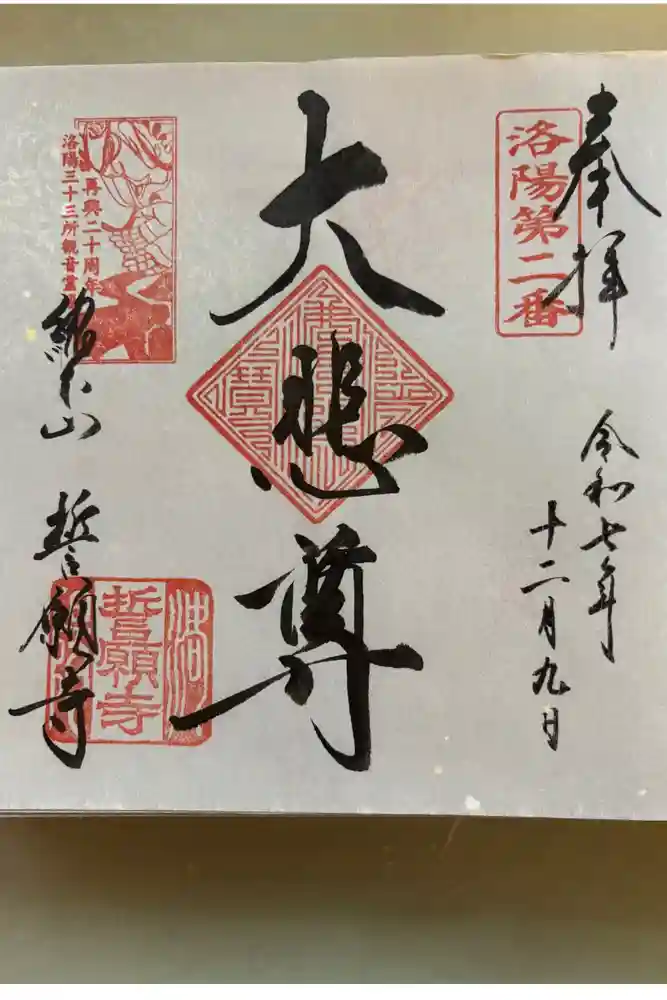 奉拝
洛陽第二番
令和七年
十二月九日
大悲尊
再興二十周年
洛陽三十三所観音霊
総本山 誓願寺
誓願寺